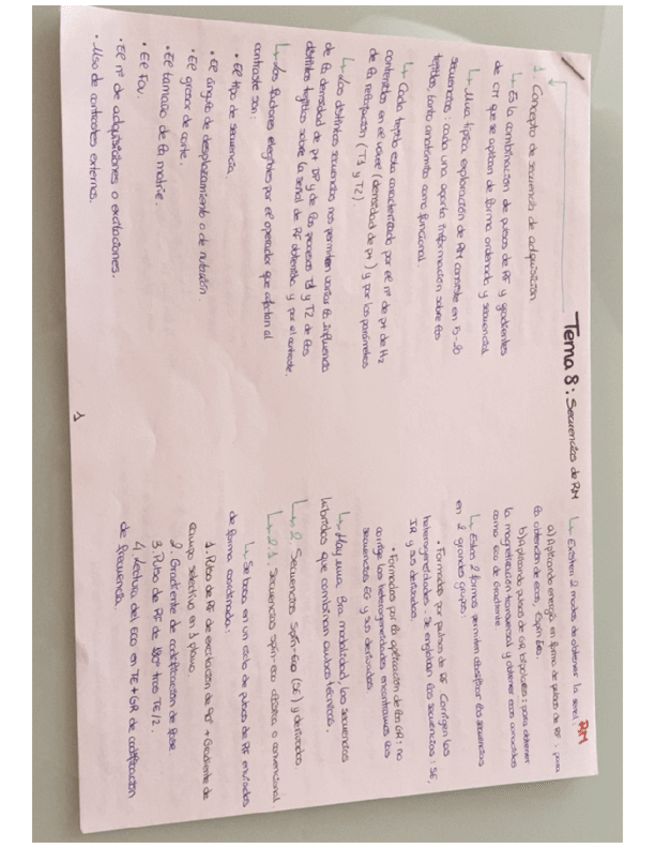 RM
Tema 8: Secuencias de RM
1. Concepto de secuencia de adquisición
↳ Es la combinación de pulsos de RF y gradientes
de CM que se aplican de forma ordenada y secuencial
↳ Una típica exploración de RM consiste en 5-20
secuencias: cada una aporta información sobre los
tejidos, tanto anatómica como funcional.
↳ Cada tejido esta caracterizado por el nº de p+ de H2
contenidos en el voxel (densidad de p+) y por los parámetros
de la relajación (T1 y T2).
↳ Las distintas secuencias nos permiten variar la influencia
de la densidad de p+ DP y de los procesos T1 y T2 de los
distintos tejidos sobre la señal de RF obtenida y por el contraste.
↳ Los factores elegibles por el operador que afectan al
contraste son:
• El tipo de secuencia.
• El ángulo de desplazamiento o de nutación
• El grosor de corte.
• El tamaño de la matriz.
• El FOV.
• El nº de adquisiciones o excitaciones.
• Uso de contrastes externos.
1
↳ Existen 2 modos de obtener la señal
a) Aplicando energía en forma de pulsos de RF, para
la obtención de ecos, Espín Eco.
b) Aplicando pulsos de GR bipolares: para obtener
la magnetización transversal y obtener ecos conocidos
como eco de Gradiente.
↳ Estas 2 formas permiten clasificar las secuencias
en 2 grandes grupos:
• Formadas por pulsos de RF Corrigen las
heterogeneidades. Se engloban las secuencias: SE,
IR y sus derivadas.
• Formadas por la aplicación de los GR: no
corrige las heterogeneidades encontramos las
secuencias EG y sus derivadas
↳ Hay una 3ra modalidad, las secuencias
híbridas que combinan ambas técnicas.
↳ 2. Secuencias Spin-eco (SE) y derivadas.
↳ 2.1. Secuencias spin-eco clásica o convencional.
↳ Se basa en un ciclo de pulsos de RF enviados
de forma coordinada:
1. Pulso de RF de excitación de 90º + Gradiente de
campo selectivo en 1 plano.
2. Gradiente de codificación de fase
3. Pulso de RF de 180º tras TE/2.
4. Lectura del eco en TE + GR de codificación
de frecuencia.